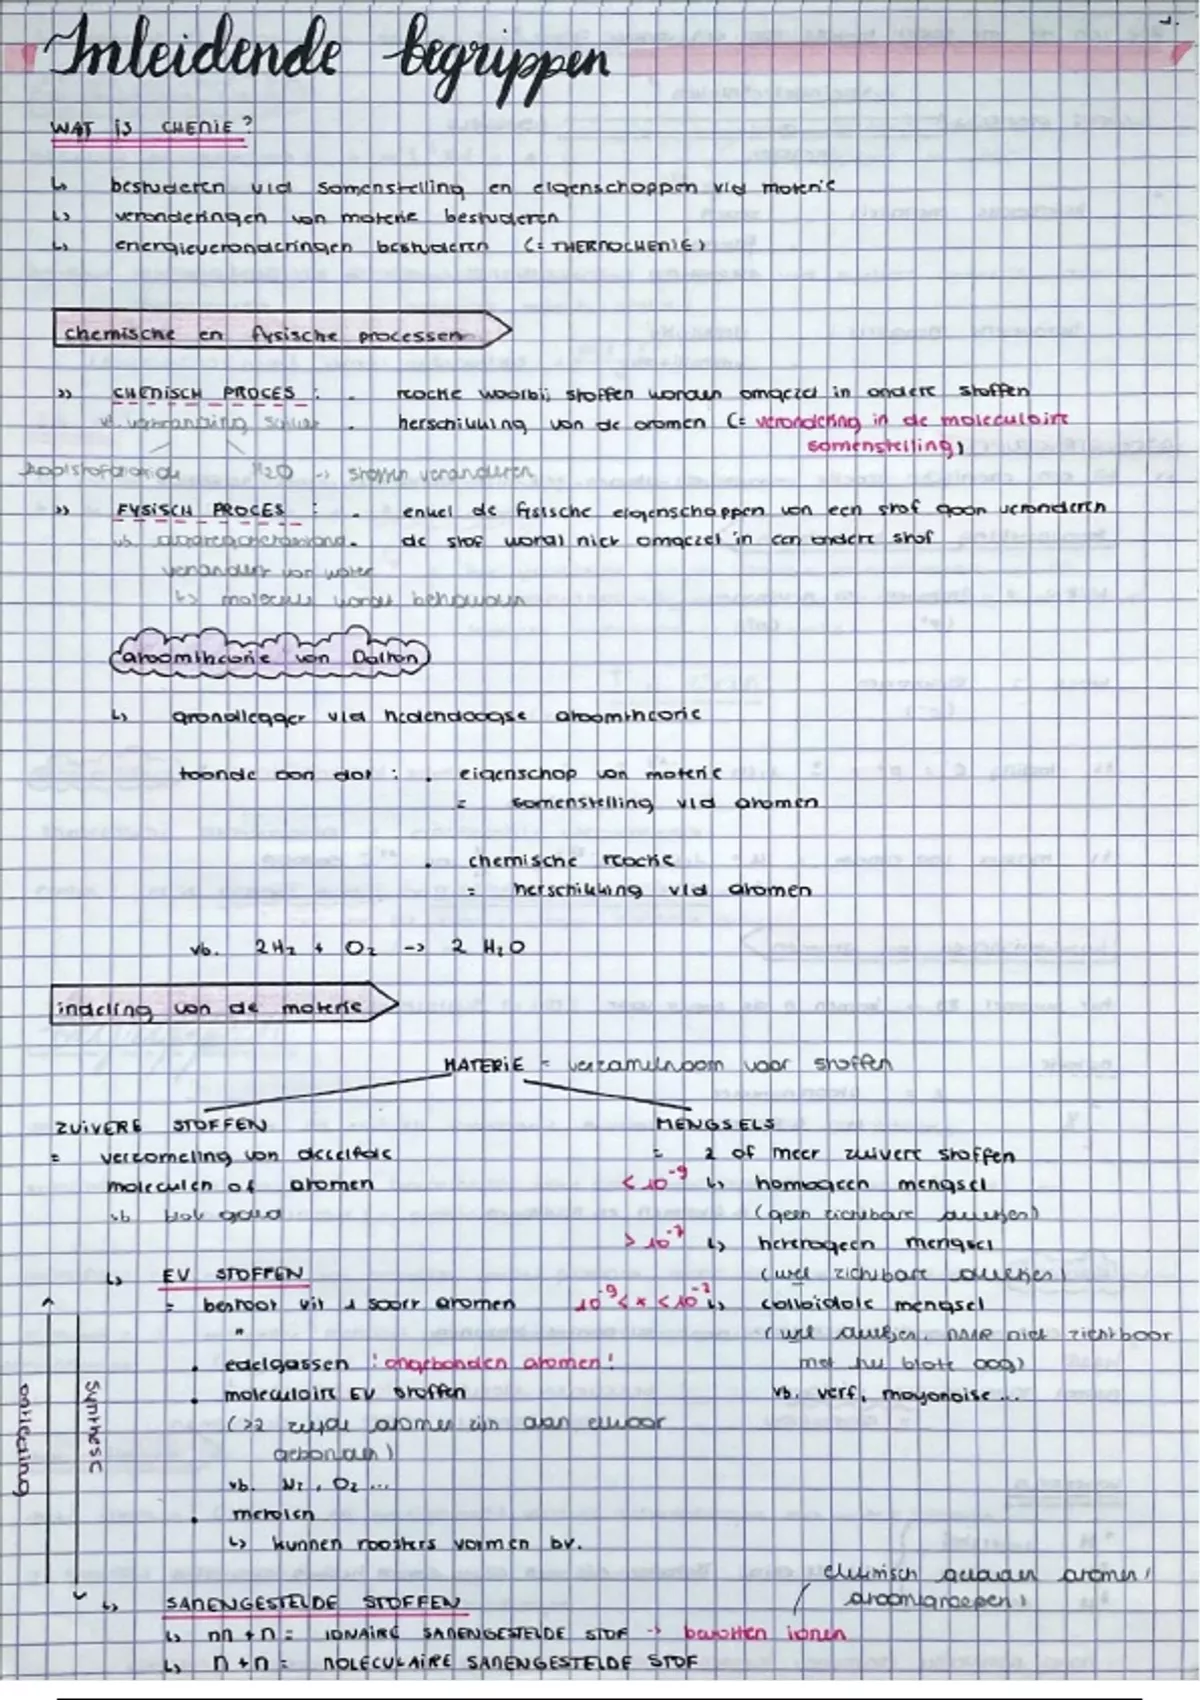 1.
Inleidende begrippen
WAT is CHEMIE?
↳ bestuderen v/d samenstelling en eigenschappen v/d materie
↳ veranderingen van materie bestuderen
↳ energieveranderingen bestuderen (= THERMOCHEMIE)
chemische en fysische processen
>> CHEMISCH PROCES : . reactie waarbij stoffen worden omgezet in andere stoffen
vb. verbranding suiker . herschikking van de atomen (= verandering in de moleculaire
samenstelling)
koolstofdioxide H2O -> stoffen veranderen
>> FYSISCH PROCES : . enkel de fysische eigenschappen van een stof gaan veranderen
vb. aggregatietoestand . de stof wordt niet omgezet in een andere stof
verandert van water
↳ molecule wordt behouden
atoomtheorie van Dalton
↳ grondlegger v/d hedendaagse atoomtheorie
toonde aan dat : . eigenschap van materie
= samenstelling v/d atomen
. chemische reactie
= herschikking v/d atomen
vb. 2H₂ + O₂ -> 2 H₂O
indeling van de materie
MATERIE = verzamelnaam voor stoffen
ZUIVERE STOFFEN MENGSELS
= verzameling van dezelfde = 2 of meer zuivere stoffen
moleculen of atomen < 10⁻⁹ ↳ homogeen mengsel
vb. blok goud (geen zichtbare deeltjes)
> 10⁻⁷ ↳ heterogeen mengsel
↳ EV STOFFEN (wel zichtbare deeltjes)
= bestaat uit 1 soort atomen 10⁻⁹ < x < 10⁻⁷ ↳ colloïdale mengsel
" (wel deeltjes, MAAR niet zichtbaar
. edelgassen : ongebonden atomen! met het blote oog)
. moleculaire EV stoffen vb. verf, mayonaise...
(>2 zelfde atomen zijn aan elkaar
gebonden)
vb. N₂, O₂ ...
. metalen
↳ kunnen roosters vormen bv.
synthese
ontleding
↳ SAMENGESTELDE STOFFEN
↳ nM + M = IONAIRE SAMENGESTELDE STOF -> bevatten ionen
↳ nM + nM = MOLECULAIRE SAMENGESTELDE STOF